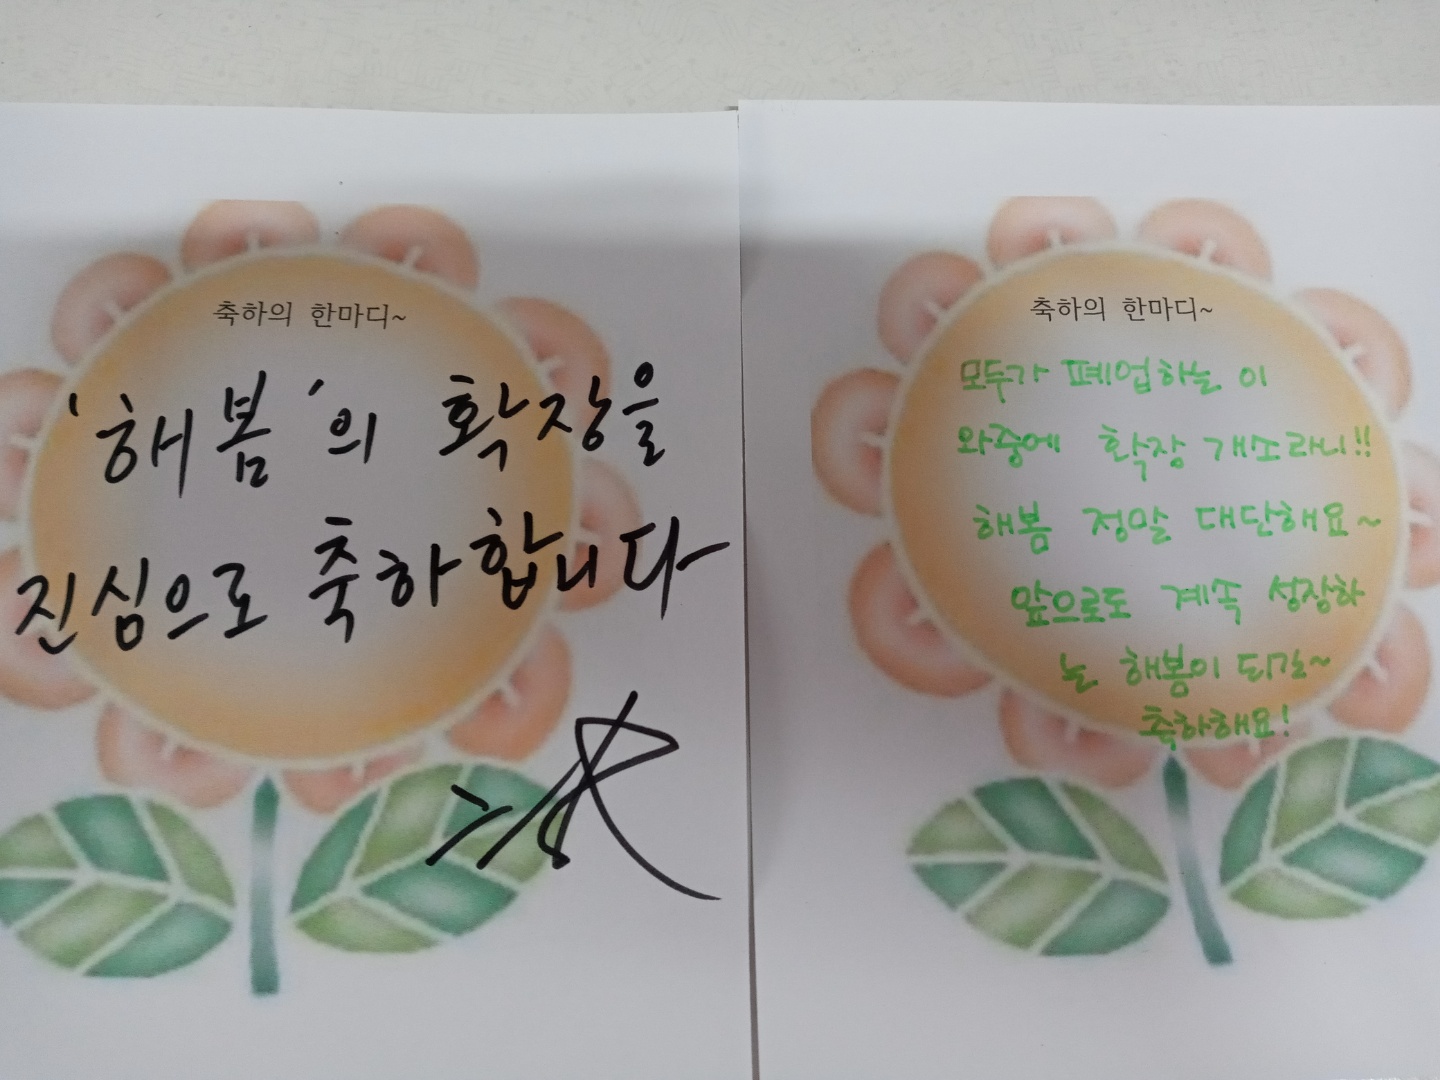 축하의 한마디~
'해봄'의 확장을
진심으로 축하합니다
축하의 한마디~
모두가 폐업하늘 이
와중에 확장 개소라니!!
해봄 정말 대단해요~
앞으로도 계속 성장하
는 해봄이 되길~
축하해요!